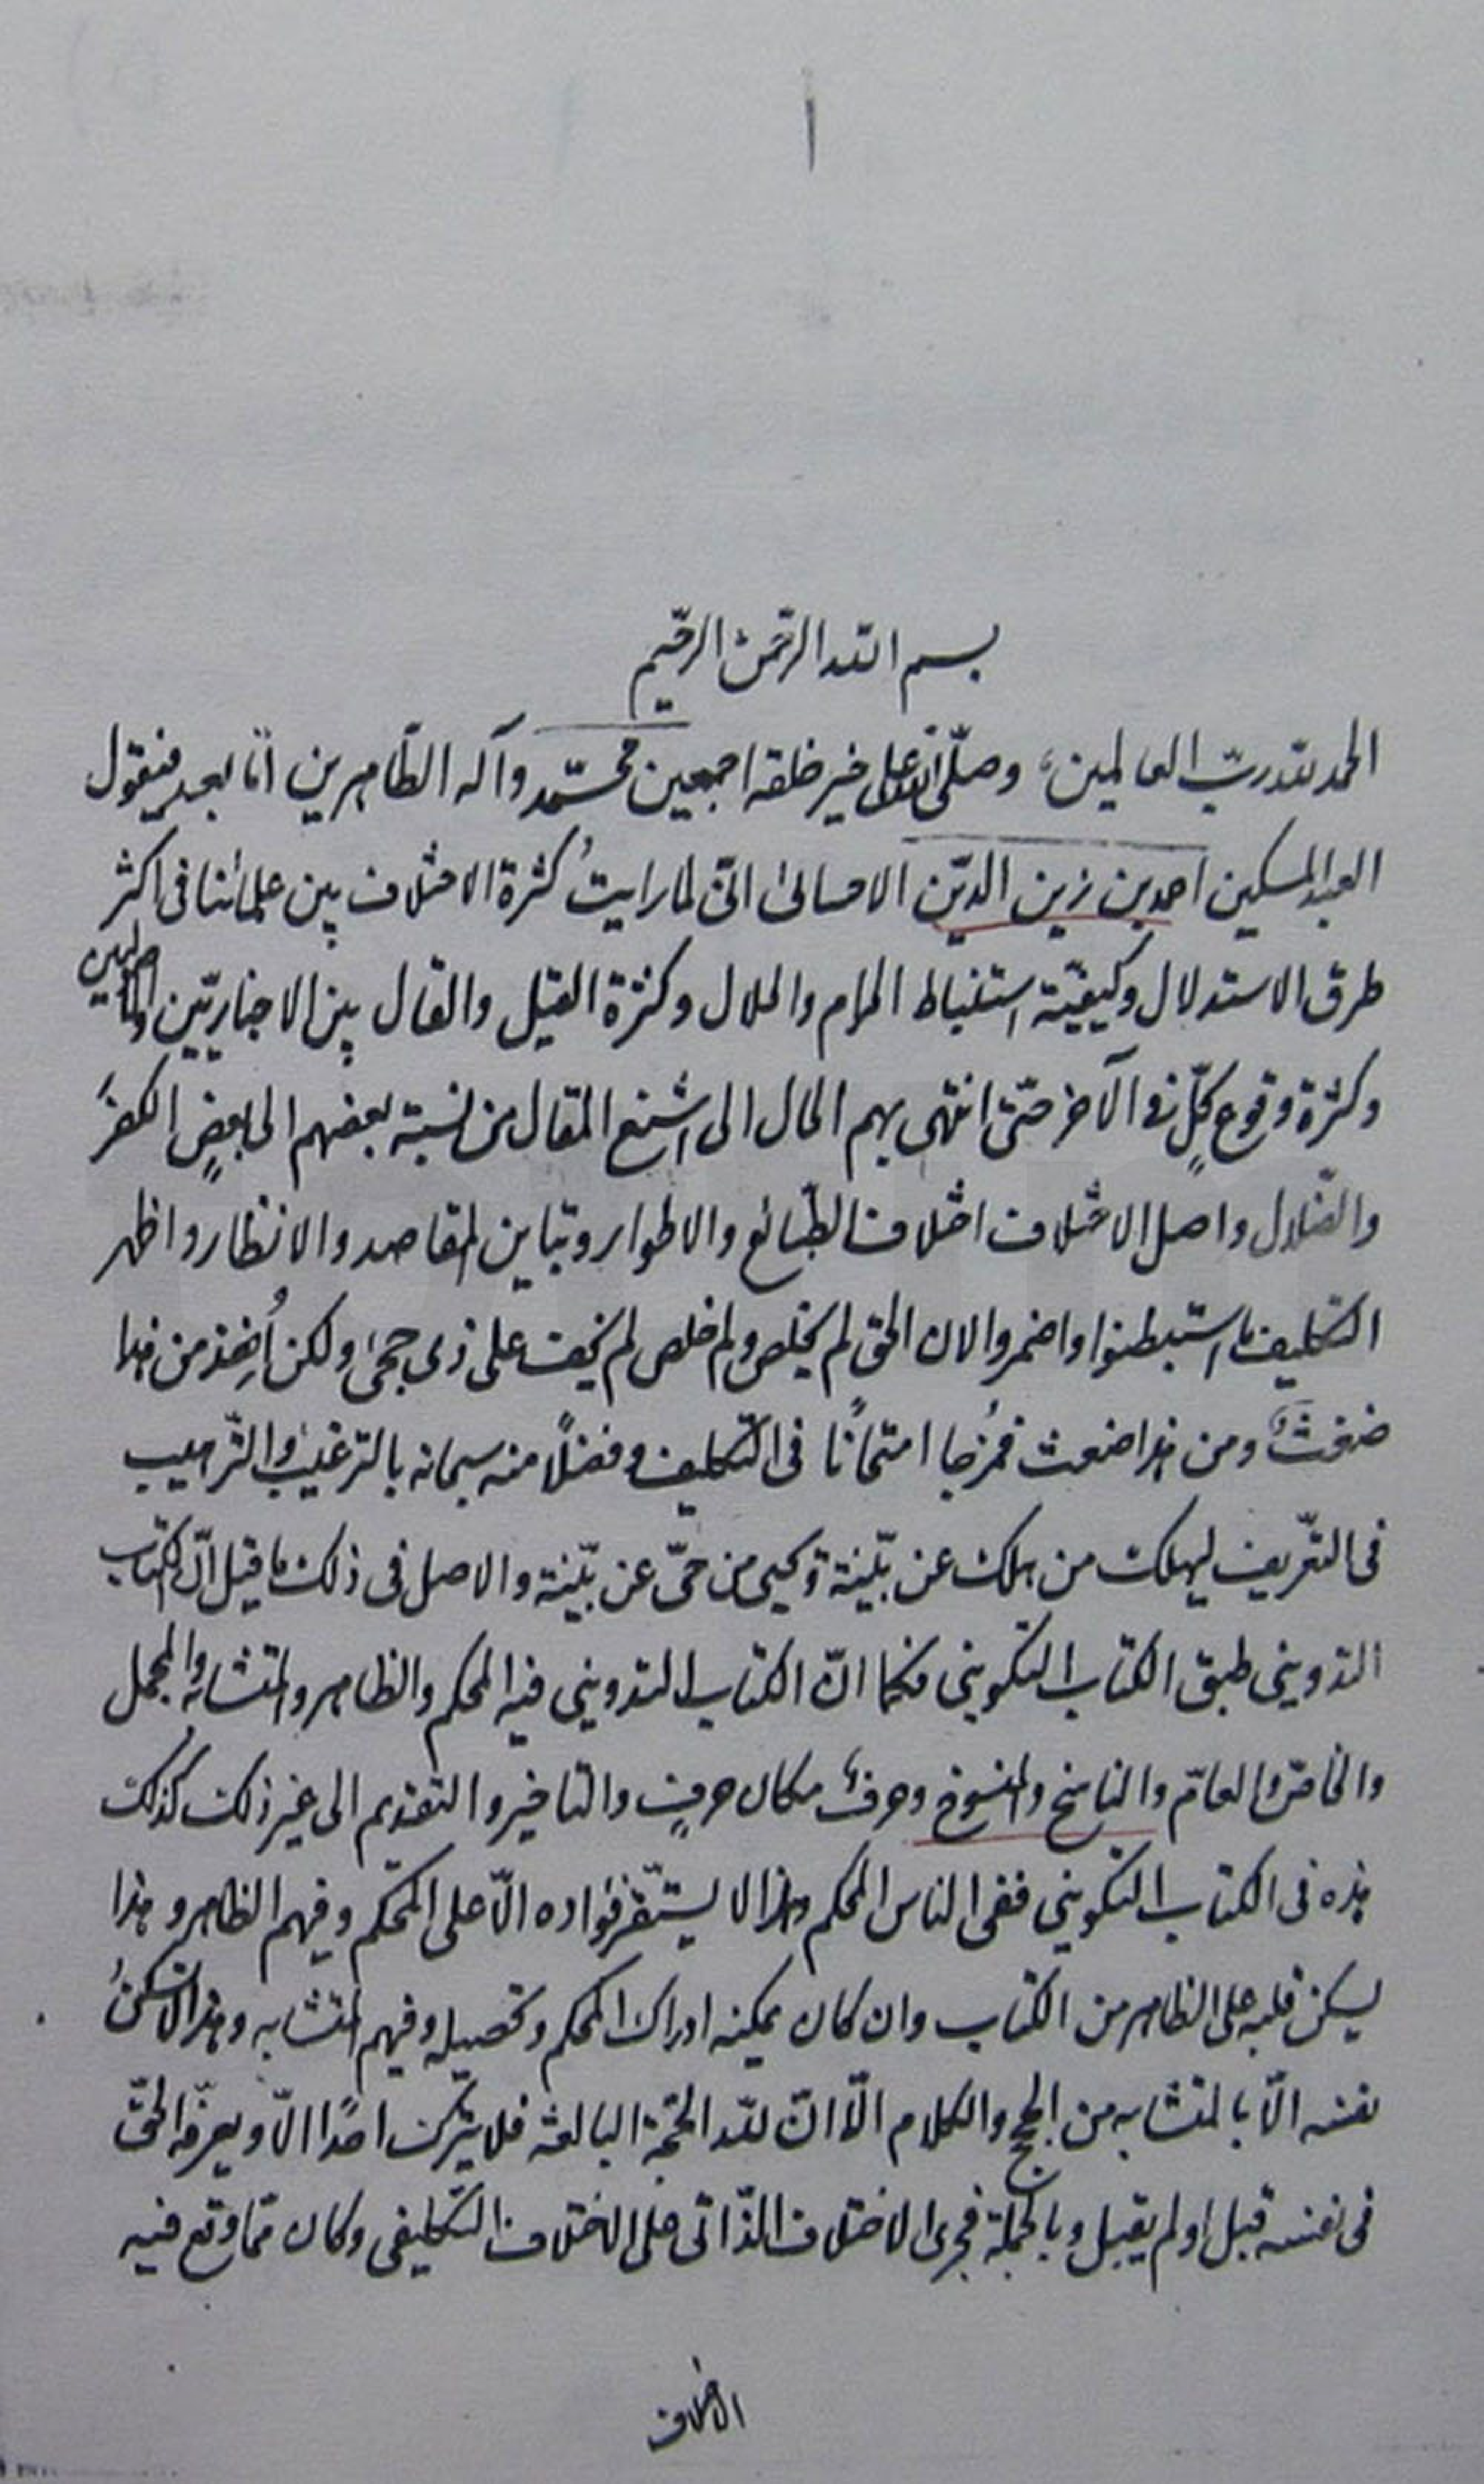 ا
بسم الله الرحمن الرحيم
الحمد لله ربّ العالمين، وصلّى الله على خير خلقه اجمعين محمّد وآله الطّاهرين امّا بعد فيقول
العبد المسكين احمد بن زين الدّين الاحسائى انّى لما رايتُ كثرة الاختلاف بين علمائنا فى اكثر
طرق الاستدلال وكيفيّة استنباط الحرام والحلال وكثرة القيل والقال بين الاخباريّين والاصوليين
وكثرة وقوع كلّ فى الآخر حتّى انتهى بهم الحال الى اشنع المقال من نسبة بعضهم الى بعضٍ الكفرَ
والضّلال واصل الاختلاف اختلاف الطّبائع والاطوار وتباين المقاصد والانظار واظهر
التّكليف ما استبطنوا واضمروا لان الحق لم يخلص ولو خلص لم يخف على ذى حجىً ولكن اُخِذ من هذا
ضغثٌ ومن هذا ضغث فمُزجا امتحانًا فى التّكليف وفضلًا منه سبحانه بالترغيب والتّرهيب
فى التعريف ليهلك من هلك عن بيّنة ويحيى من حىّ عن بيّنة والاصل فى ذلك ما قيل انّ الكتاب
التدوينى طبق الكتاب التكوينى فكما انّ الكتاب التدوينى فيه المحكم والظاهر والمتشابه والمجمل
والخاصّ والعامّ والناسخ والمنسوخ وحرفٌ مكان حرفٍ والتاخير والتقديم الى غير ذلك كذلك
هذه فى الكتاب التكوينى ففى الناس المحكم وهذا لا يستقرّ فؤاده الّا على المحكم وفيهم الظاهر وهذا
يسكن قلبه على الظاهر من الكتاب وان كان يمكنه ادراك المحكم وتحصيله وفيهم المتشابه وهذا لا تسكنُ
نفسه الّا بالمتشابه من الحجج والكلام الّا انّ لله الحجّة البالغة فلا يترك احدًا الّا ويعرّفه الحقّ
فى نفسه قبل او لم يقبل وبالجملة فجرى الاختلاف الذّاتى على الاختلاف التّكليفى وكان ممّا وقع فيه
الاختلاف